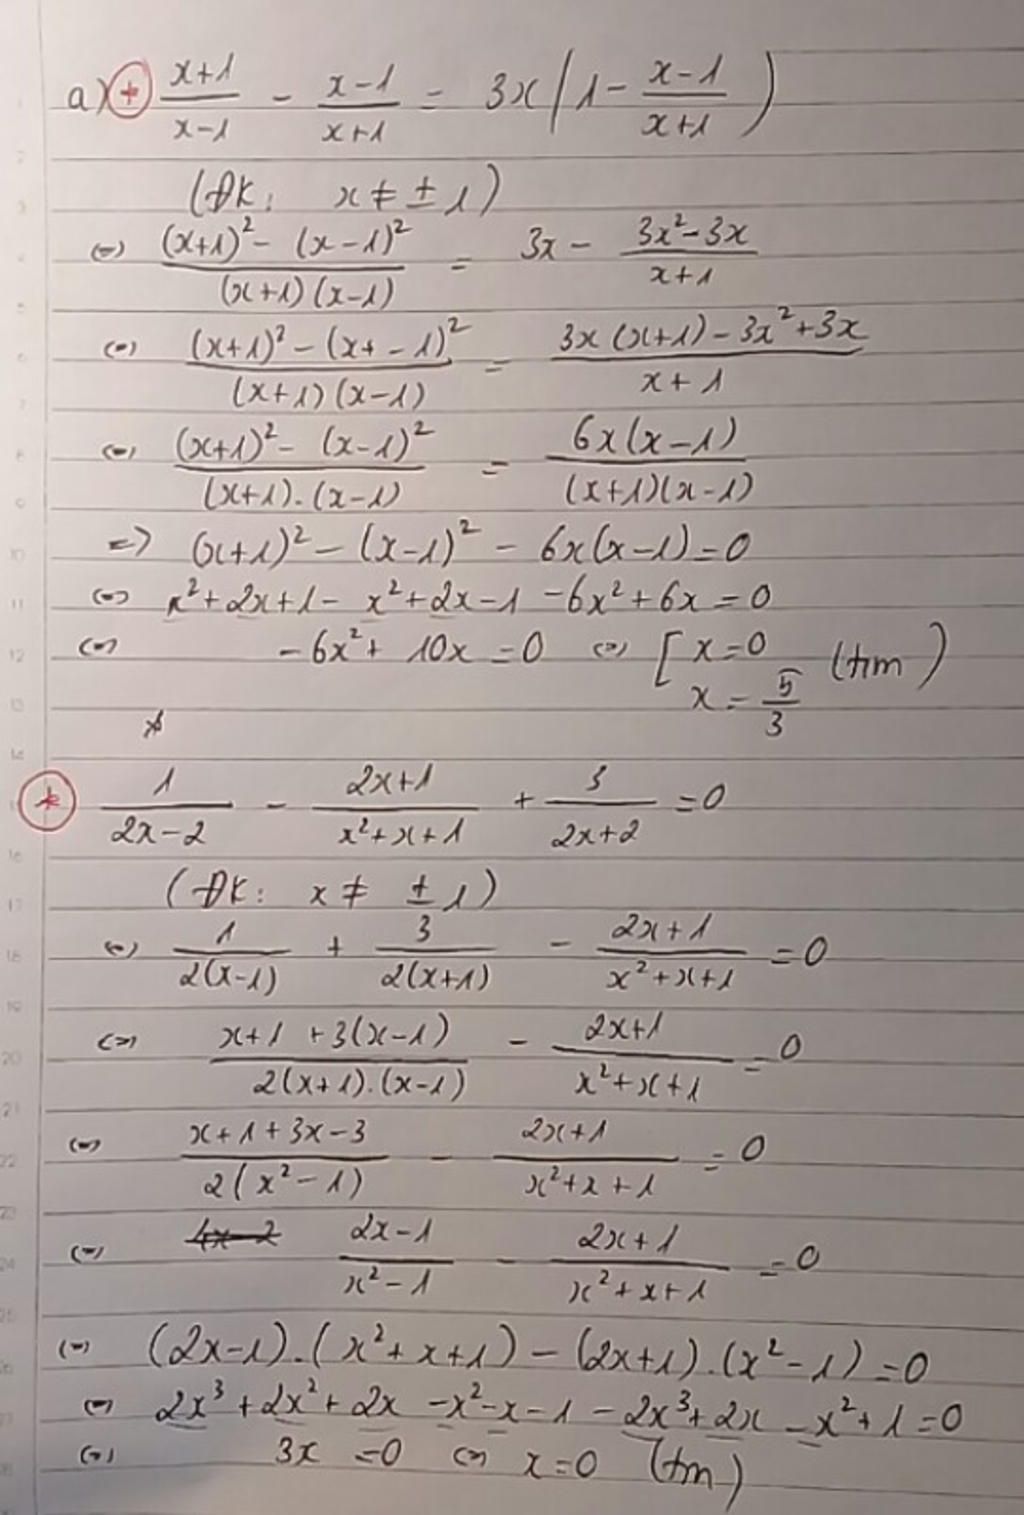 a) + (x+1)/(x-1) - (x-1)/(x+1) = 3x(1 - (x-1)/(x+1))
(ĐK: x ≠ ±1)
<=> ((x+1)² - (x-1)²)/((x+1)(x-1)) = 3x - (3x²-3x)/(x+1)
<=> ((x+1)² - (x+-1)²)/((x+1)(x-1)) = (3x(x+1) - 3x²+3x)/(x+1)
<=> ((x+1)² - (x-1)²)/((x+1).(x-1)) = (6x(x-1))/((x+1)(x-1))
=> (x+1)² - (x-1)² - 6x(x-1) = 0
<=> x²+2x+1 - x²+2x-1 -6x²+6x = 0
<=> -6x² + 10x = 0 <=> [ x=0 x = 5/3 (tm)
*
* 1/(2x-2) - (2x+1)/(x²+x+1) + 3/(2x+2) = 0
(ĐK: x ≠ ±1)
<=> 1/(2(x-1)) + 3/(2(x+1)) - (2x+1)/(x²+x+1) = 0
<=> (x+1 +3(x-1))/(2(x+1).(x-1)) - (2x+1)/(x²+x+1) = 0
<=> (x+1+3x-3)/(2(x²-1)) - (2x+1)/(x²+x+1) = 0
<=> 4x-2 (2x-1)/(x²-1) - (2x+1)/(x²+x+1) = 0
<=> (2x-1).(x²+x+1) - (2x+1).(x²-1) = 0
<=> 2x³+2x²+2x -x²-x-1 -2x³+2x -x²+1 = 0
<=> 3x = 0 <=> x=0 (tm)